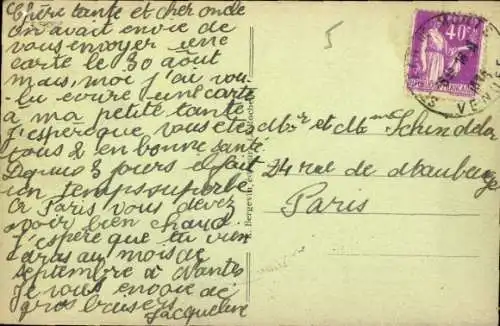 Chère tante et cher oncle
On avait envie de
vous envoyer une
carte le 30 août
mais, moi j'ai vou-
lu ecrire une carte
à ma petite tante
J'espère que vous ete
tous 2 en bonne santé.
Depuis 3 jours il fait
un temps superbe
à Paris vous devez
avoir bien chaud.
J'espère que tu vien
dras au mois de
septembre à Nantes
Je vous envoie de
gros baisers
Jacqueline
5
Mr et Mme Schindler
24 rue de Maubeuge
Paris
40c
Bergevin,